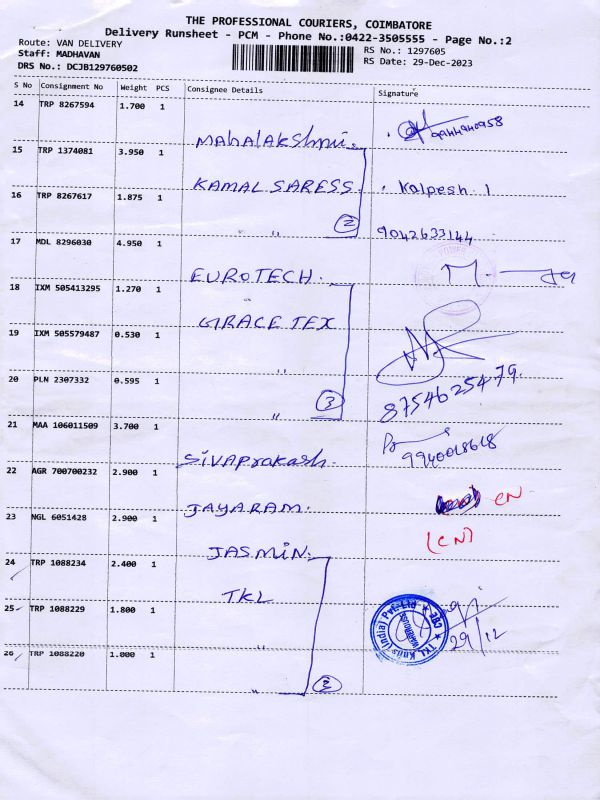 THE PROFESSIONAL COURIERS, COIMBATORE
Delivery Runsheet - PCM - Phone No.:0422-3505555 - Page No.:2
Route: VAN DELIVERY
RS No.: 1297605
Staff: MADHAVAN
RS Date: 29-Dec-2023
DRS No.: DCJB129760502
S No Consignment No Weight PCS Consignee Details Signature
14 TRP 8267594 1.700 1
MAHALAKSHMI.
15 TRP 1374081 3.950 1
KAMAL SARESS. Kalpesh. 1
16 TRP 8267617 1.875 1
" 2 9042633144
17 MDL 8296030 4.950 1
EUROTECH.
18 IXM 505413295 1.270 1
GRACE TEX
19 IXM 505579487 0.530 1
"
20 PLN 2307332 0.595 1
" 3 8754625479.
21 MAA 106011509 3.700 1
SIVAPrakash. 9940018618
22 AGR 700700232 2.900 1
JAYARAM. CN
23 NGL 6051428 2.900 1
JASMIN. (CN)
24 TRP 1088234 2.400 1
TKL
25 TRP 1088229 1.800 1
TKL Knits (India) Pvt. Ltd ★ CBE ★
WAREHOUSE
29/12
26 TRP 1088220 1.000 1
"